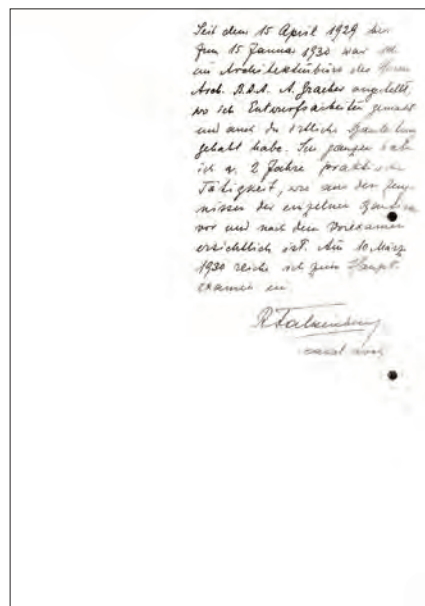 Seit dem 15 April 1929 bis
zum 15 Januar 1930 war ich
im Architekturbüro des Herrn
Arch. B.D.A. A. angestellt,
wo ich Entwurfsarbeiten gemacht
und auch die örtliche Bauleitung
gehabt habe. Im ganzen habe
ich 2 Jahre praktische
Tätigkeit, wie aus den Zeug-
nissen der einzelnen
vor und nach dem Vorexamen
ersichtlich ist. Am 10 März
1930 reiche ich zum Haupt-
examen ein.